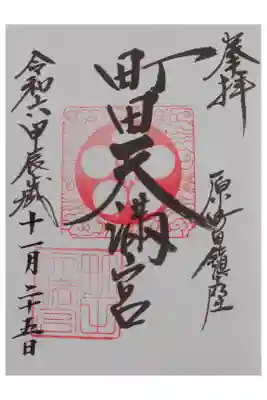 奉拝
原町田鎮座
町田天満宮
令和六甲辰歳十一月二十五日